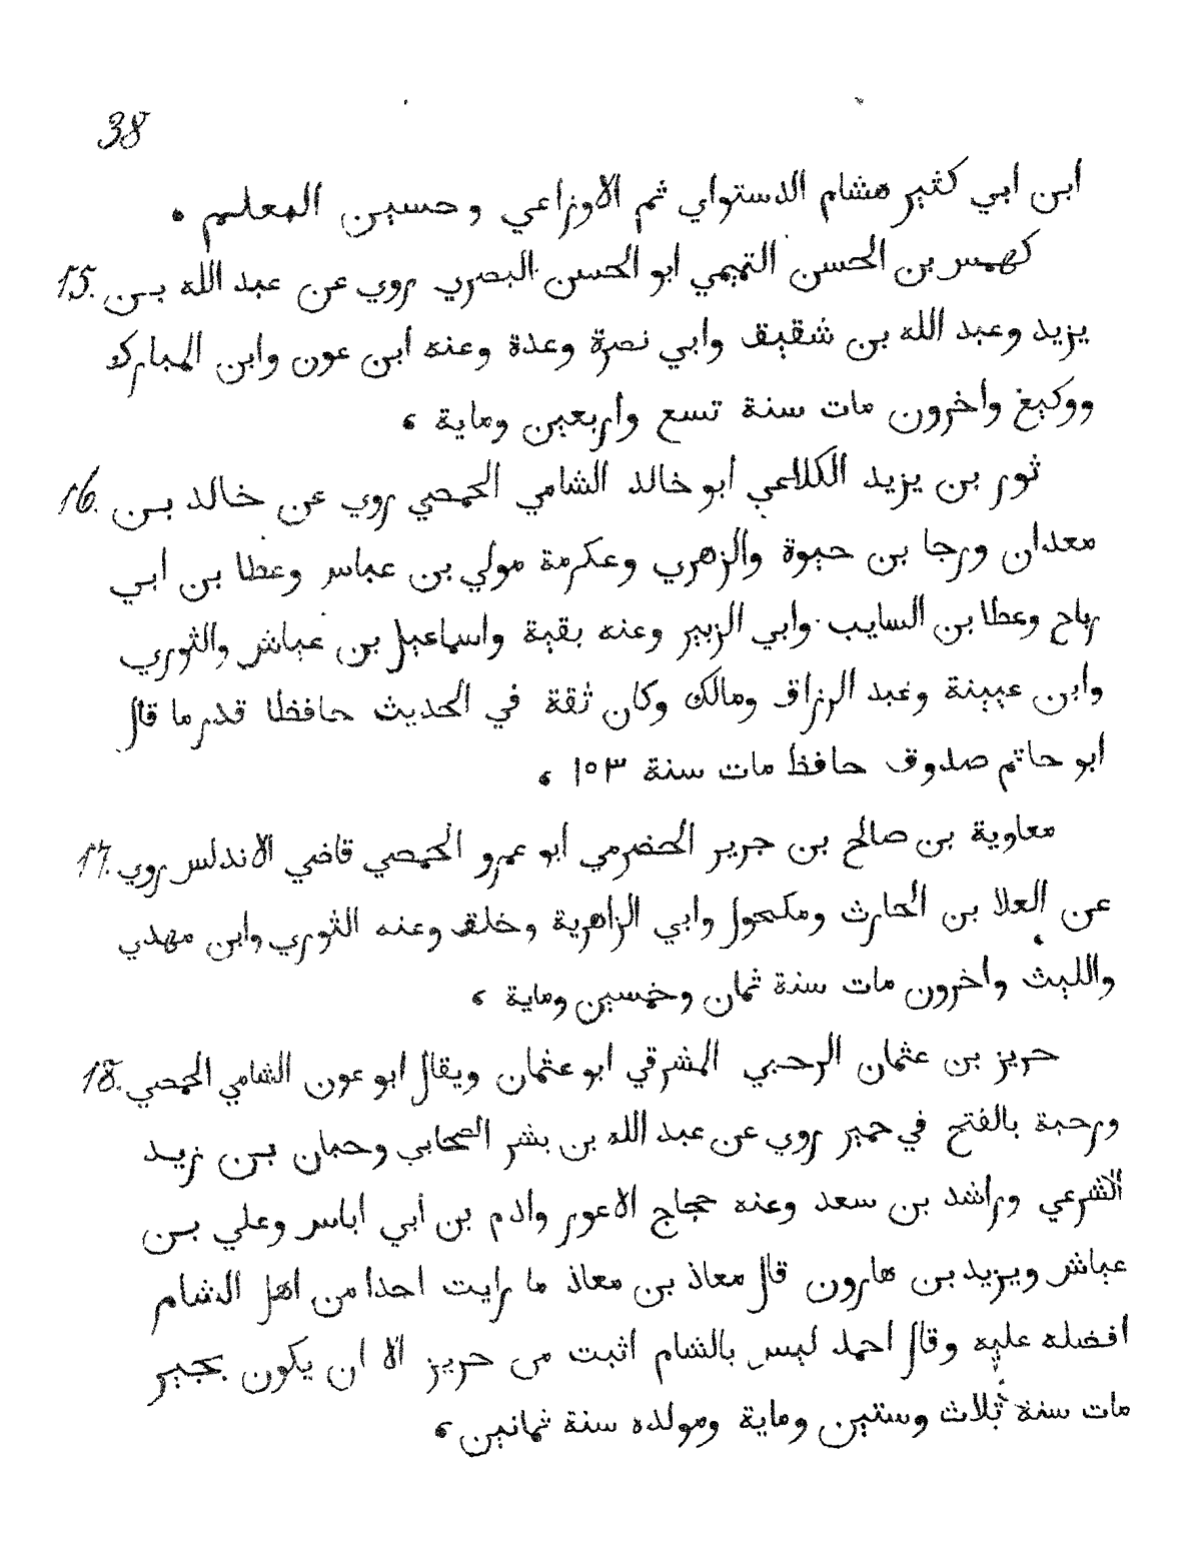 38
ابن ابي كثير هشام الدستواي ثم الاوزاعي وحسين المعلم ،
15. كهمس بن الحسن التميمي ابو الحسن البصري روي عن عبد الله بن
يزيد وعبد الله بن شقيق وابي نصرة وعدة وعنه ابن عون وابن المبارك
ووكيغ واخرون مات سنة تسع واربعين وماية ،
16. ثور بن يزيد الكلاعي ابو خالد الشامي الحمصي روي عن خالد بن
معدان ورجا بن حيوة والزهري وعكرمة مولي بن عباس وعطا بن ابي
رباح وعطا بن السايب وابي الزبير وعنه بقية واسماعيل بن عياش والثوري
وابن عيينة وعبد الرزاق ومالك وكان ثقة في الحديث حافظا قدر ما قال
ابو حاتم صدوق حافظ مات سنة ١٥٣ ،
17. معاوية بن صالح بن جرير الحضرمي ابو عمرو الحمصي قاضي الاندلس روي
عن العلا بن الحارث ومكحول وابي الزاهرية وخلق وعنه الثوري وابن مهدي
والليث واخرون مات سنة ثمان وخمسين وماية ،
18. حريز بن عثمان الرحبي المشرقي ابو عثمان ويقال ابو عون الشامي الحمصي
ورحبة بالفتح في حمير روي عن عبد الله بن بشر الصحابي وحبان بن زيد
الشرعي وراشد بن سعد وعنه حجاج الاعور وادم بن أبي اياس وعلي بن
عياش ويزيد بن هارون قال معاذ بن معاذ ما رايت احدا من اهل الشام
افضله عليه وقال احمد ليس بالشام اثبت من حريز الا ان يكون بجير
مات سنة ثلاث وستين وماية ومولده سنة ثمانين ،